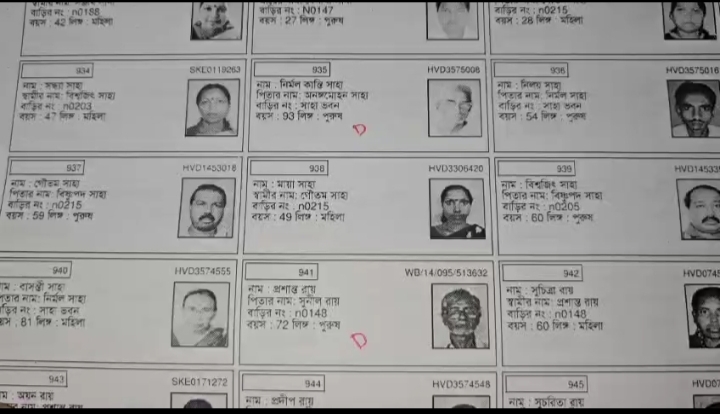 বাড়ির নং : n0188
বয়স : 42 লিঙ্গ : মহিলা
বাড়ির নং : N0147
বয়স : 27 লিঙ্গ : পুরুষ
বাড়ির নং : n0215
বয়স : 28 লিঙ্গ : মহিলা
934 SKE0119263
নাম : সন্ধ্যা সাহা
স্বামীর নাম: বিশ্বজিৎ সাহা
বাড়ির নং : n0203
বয়স : 47 লিঙ্গ : মহিলা
935 HVD3575008
নাম : নির্মল কান্তি সাহা
পিতার নাম: অনঙ্গমোহন সাহা
বাড়ির নং : সাহা ভবন
বয়স : 93 লিঙ্গ : পুরুষ
D
936 HVD3575016
নাম : নিলয় সাহা
পিতার নাম: নির্মল সাহা
বাড়ির নং : সাহা ভবন
বয়স : 54 লিঙ্গ : পুরুষ
937 HVD1453018
নাম : গৌতম সাহা
পিতার নাম: বিষ্ণুপদ সাহা
বাড়ির নং : n0215
বয়স : 59 লিঙ্গ : পুরুষ
938 HVD3306420
নাম : মায়া সাহা
স্বামীর নাম: গৌতম সাহা
বাড়ির নং : n0215
বয়স : 49 লিঙ্গ : মহিলা
939 HVD14533
নাম : বিশ্বজিৎ সাহা
পিতার নাম: বিষ্ণুপদ সাহা
বাড়ির নং : n0205
বয়স : 60 লিঙ্গ : পুরুষ
940 HVD3574555
াম : বাসন্তী সাহা
নাম: নির্মল সাহা
নং : সাহা ভবন
: 81 লিঙ্গ : মহিলা
941 WB/14/095/513632
নাম : প্রশান্ত রায়
পিতার নাম: সুনীল রায়
বাড়ির নং : n0148
বয়স : 72 লিঙ্গ : পুরুষ
D
942 HVD0745
নাম : সুচিত্রা রায়
স্বামীর নাম: প্রশান্ত রায়
বাড়ির নং : n0148
বয়স : 60 লিঙ্গ : মহিলা
943 SKE0171272
াম : অয়ন রায়
944 HVD3574548
নাম : প্রদীপ রায়
945 HVD07
নাম : সুচরিতা রায়